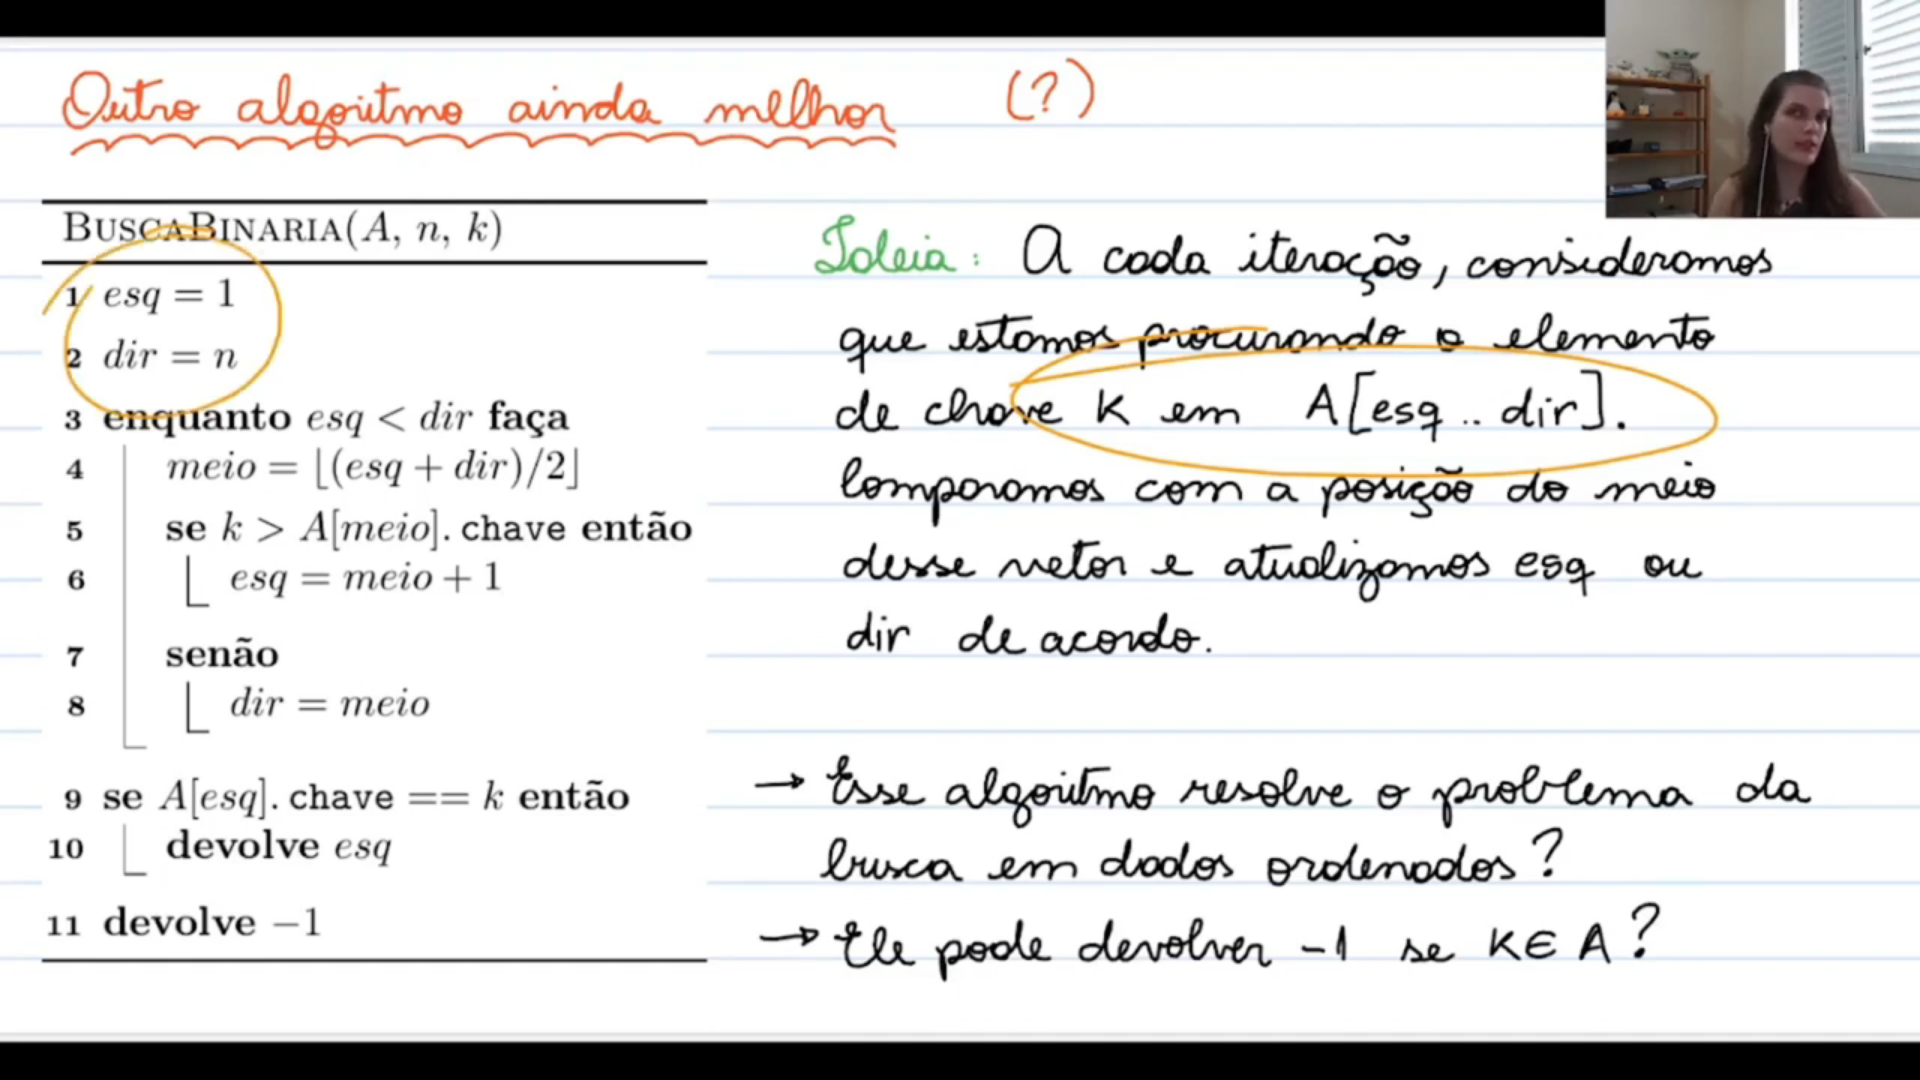 Outro algoritmo ainda melhor (?)
BUSCABINARIA(A, n, k)
1 esq = 1
2 dir = n
3 enquanto esq < dir faça
4 meio = ⌊(esq + dir)/2⌋
5 se k > A[meio].chave então
6 esq = meio + 1
7 senão
8 dir = meio
9 se A[esq].chave == k então
10 devolve esq
11 devolve −1
Ideia: A cada iteração, consideramos
que estamos procurando o elemento
de chave K em A[esq .. dir].
Comparamos com a posição do meio
desse vetor e atualizamos esq ou
dir de acordo.
→ Esse algoritmo resolve o problema da
busca em dados ordenados?
→ Ele pode devolver -1 se K∈A?